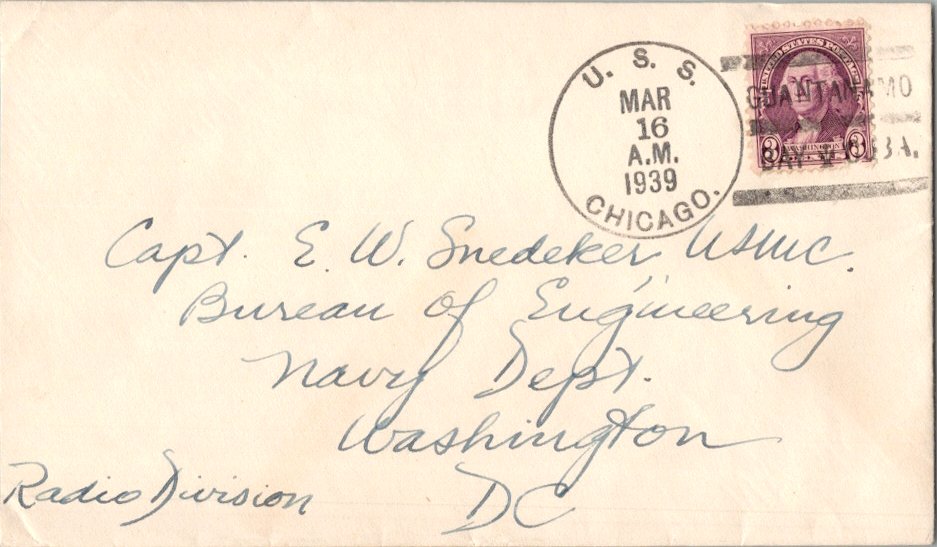 U. S. S.
MAR
16
A.M.
1939
CHICAGO.
UNITED STATES POSTAGE
GUANTANAMO
BAY CUBA.
3 WASHINGTON 3
Capt. E. W. Snedeker, USMC.
Bureau of Engineering
Navy Dept.
Washington
DC
Radio Division